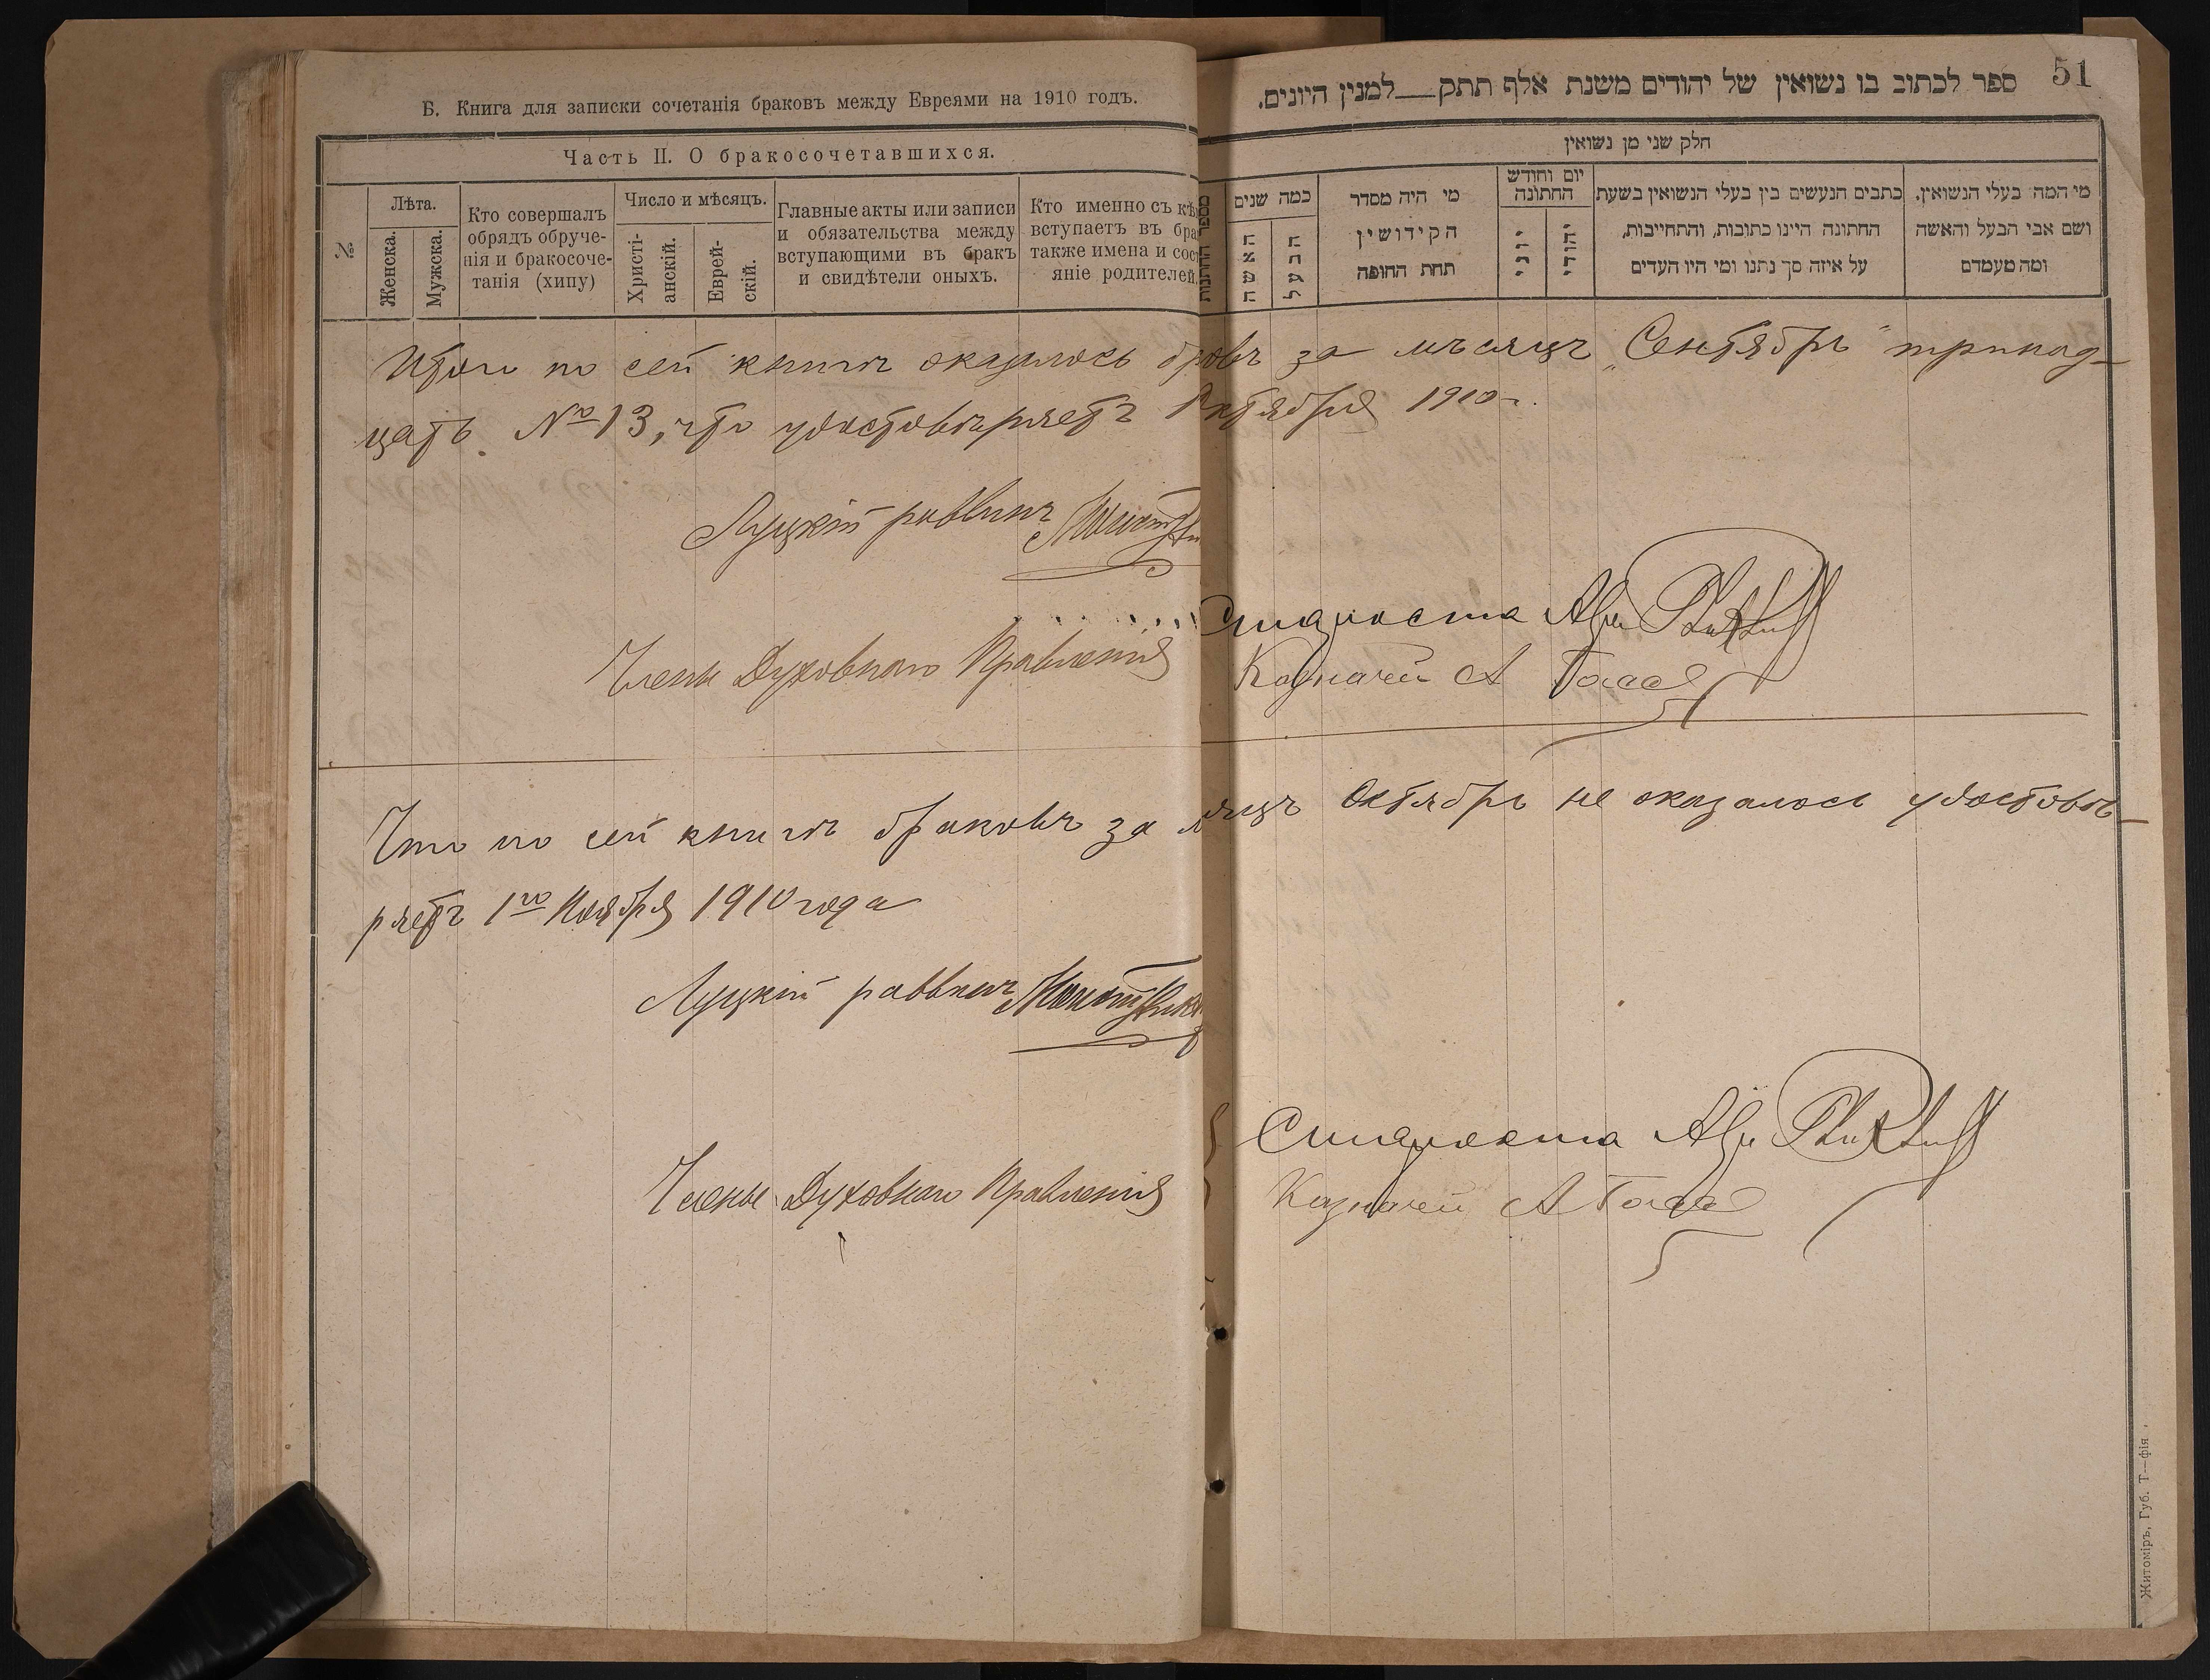 Б. Книга для записки сочетанія браковъ между Евреями на 1910 годъ.
Часть II. О бракосочетавшихся.
№
Лѣта.
Женска.
Мужска.
Кто совершалъ
обрядъ обруче-
нія и бракосоче-
танія (хипу)
Число и мѣсяцъ.
Христі-
анскій.
Еврей-
скій.
Главные акты или записи
и обязательства между
вступающими въ бракъ
и свидѣтели оныхъ.
Кто именно съ кѣ
вступаетъ въ бра
также имена и сос
яніе родителей.
51
ספר לכתוב בו נשואין של יהודים משנת אלף תתק—למנין היונים.
חלק שני מן נשואין
מספר החתונות
כמה שנים
האשה
הבעל
מי היה מסדר
הקידושין
תחת החופה
יום וחודש
החתונה
יוני
יהודי
כתבים הנעשים בין בעלי הנשואין בשעת
החתונה היינו כתובות, והתחייבות,
על איזה סך נתנו ומי היו העדים
מי המה בעלי הנשואין,
ושם אבי הבעל והאשה
ומה מעמדם
Итого по сей книгѣ оказалось за мѣсяцъ „Сентябрь" тринад-
цать № 13, что удостовѣряетъ Октября 1910 г.
Луцкій раввинъ
Староста
Члены Духовнаго Правленія
Казначей А
Что по сей книгѣ браковъ за Октябрь не оказалось удостовѣ-
ряетъ 1го Ноября 1910 года
Луцкій раввинъ
Староста
Члены Духовнаго Правленія
Казначей А
Житоміръ, Губ. Т—фія.